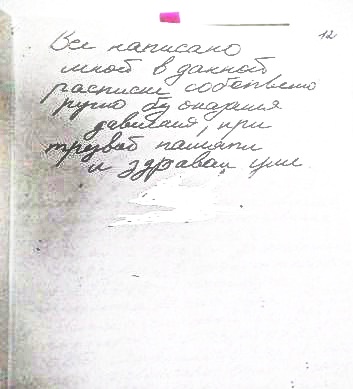 12
Все написано
мной в данной
расписке собствено
ручно бу оказания
давления, при
трезвой памяти
и здравам уме.